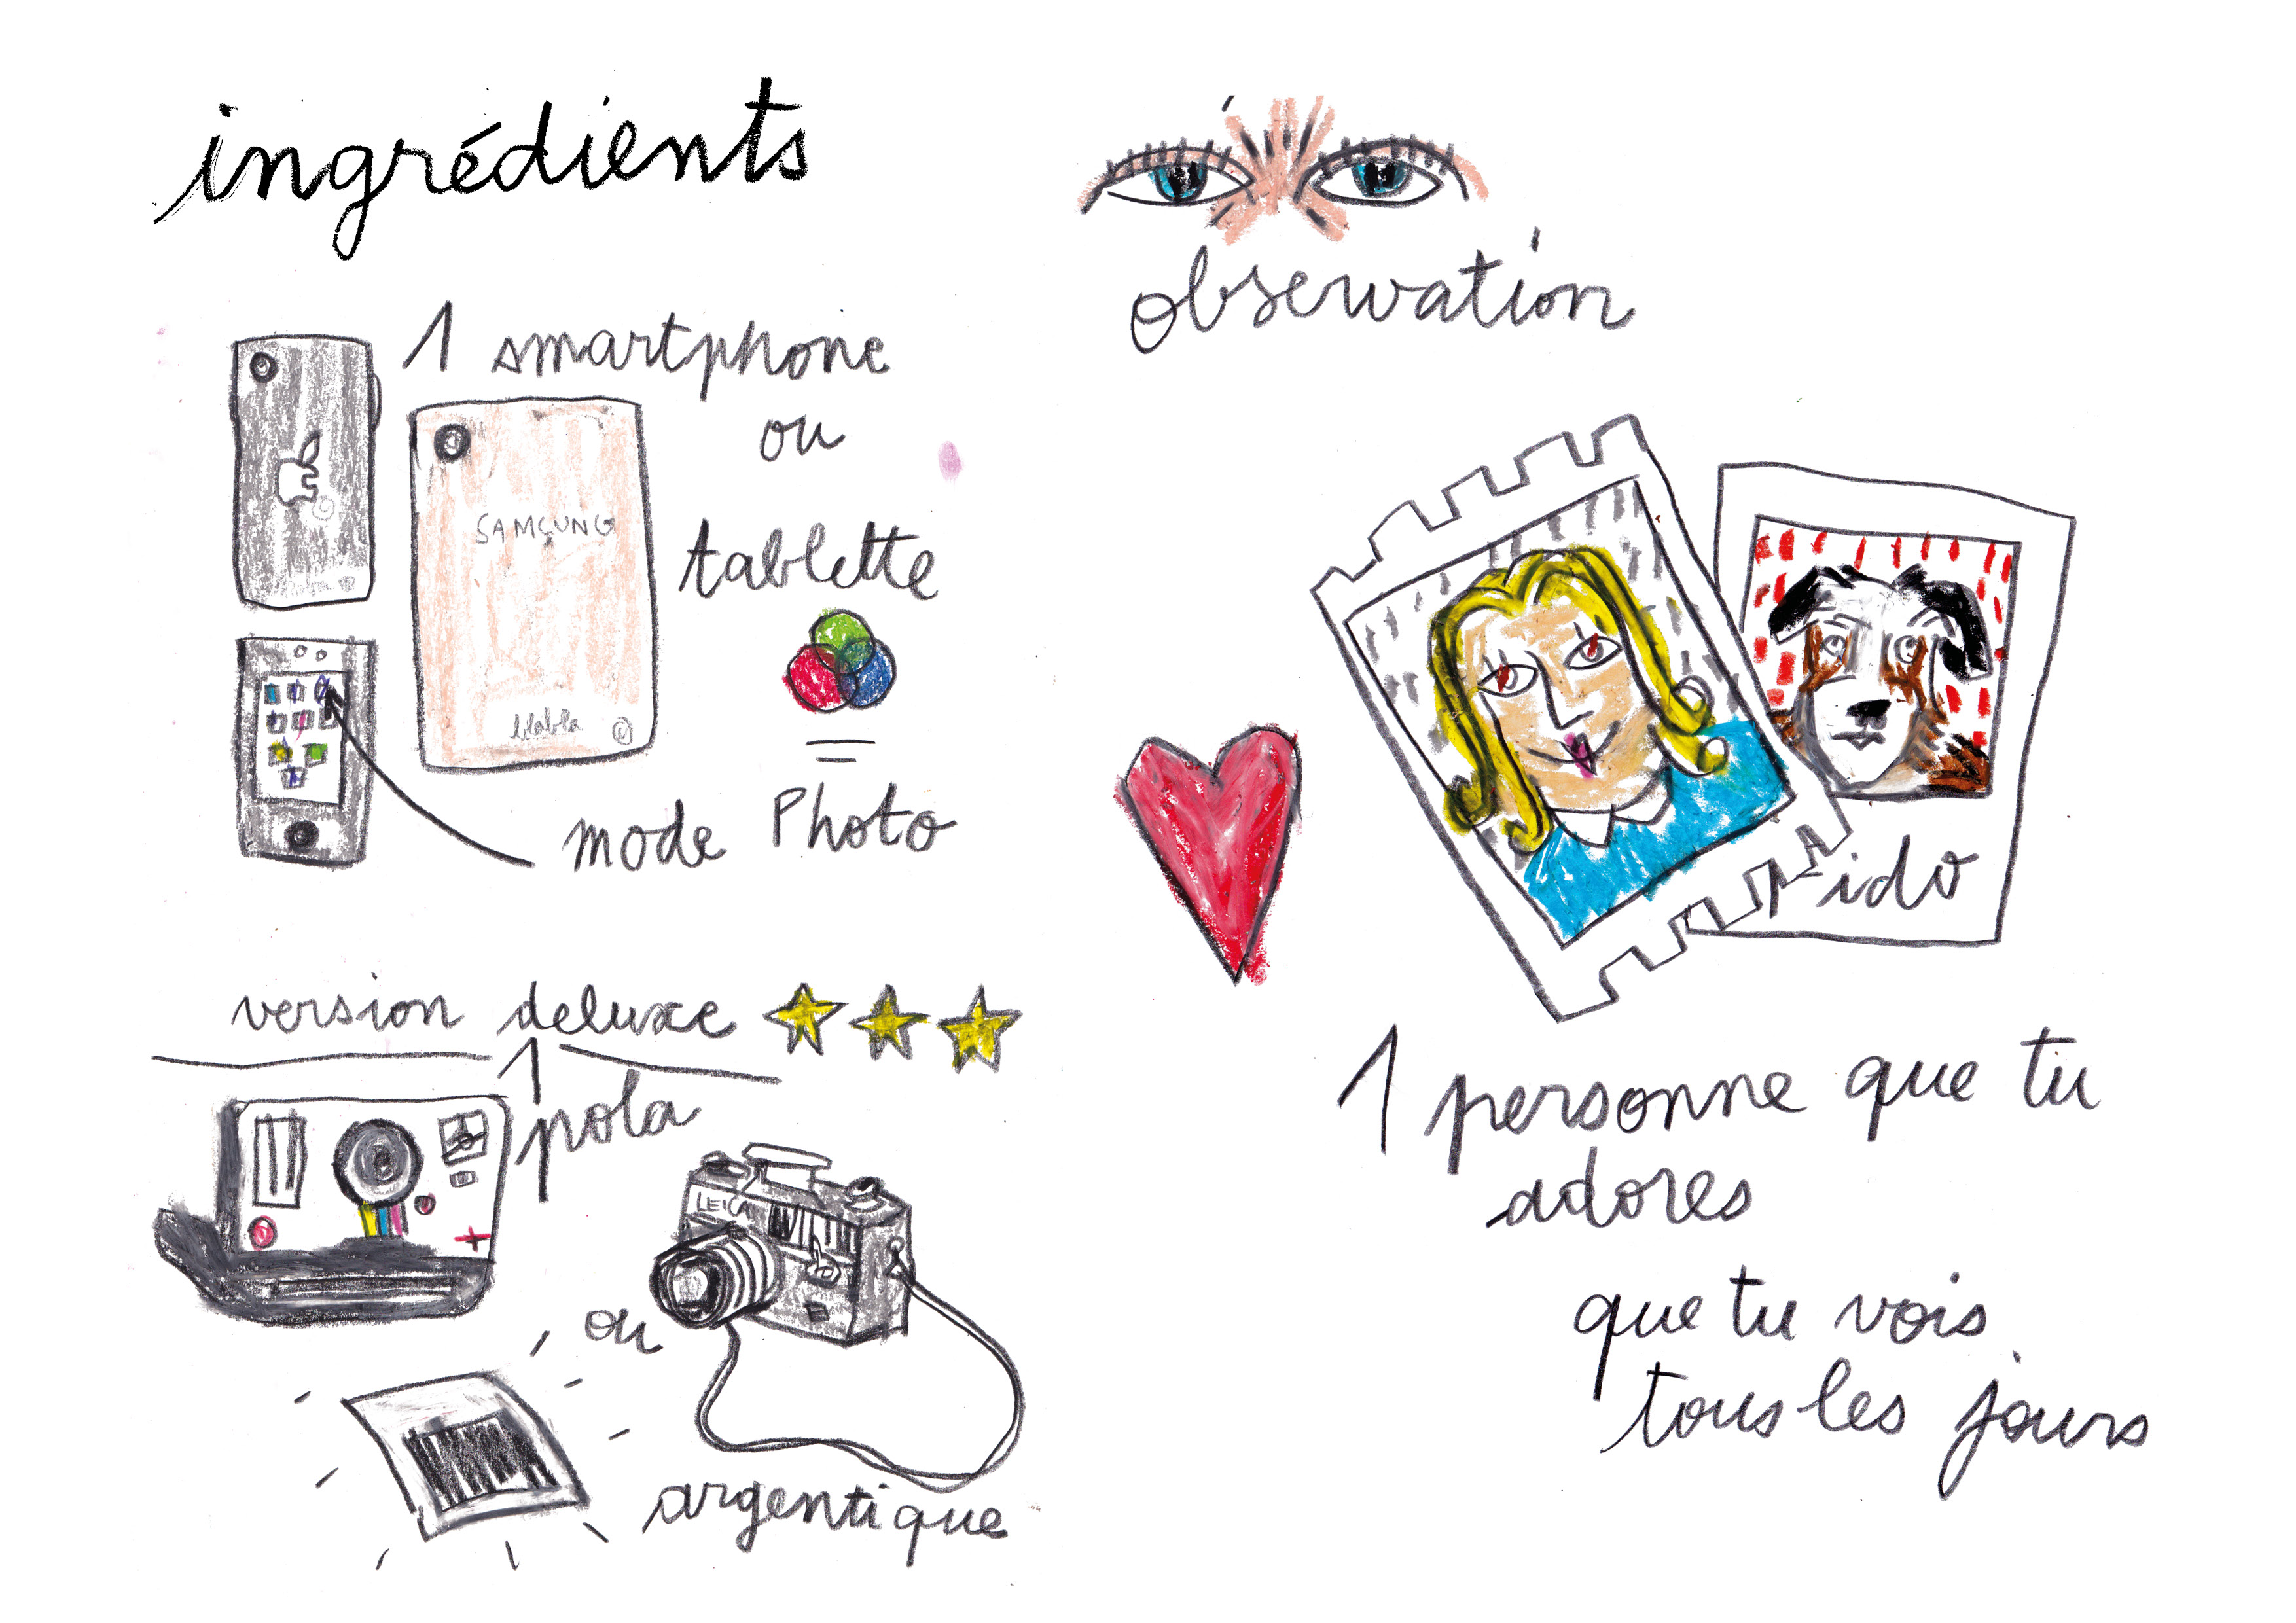 ingrédients
1 smartphone
ou
tablette
SAMSUNG
blabla
=
mode Photo
version deluxe
1
pola
LEICA
ou
argentique
observation
ido
1 personne que tu
adores
que tu vois
tous les jours